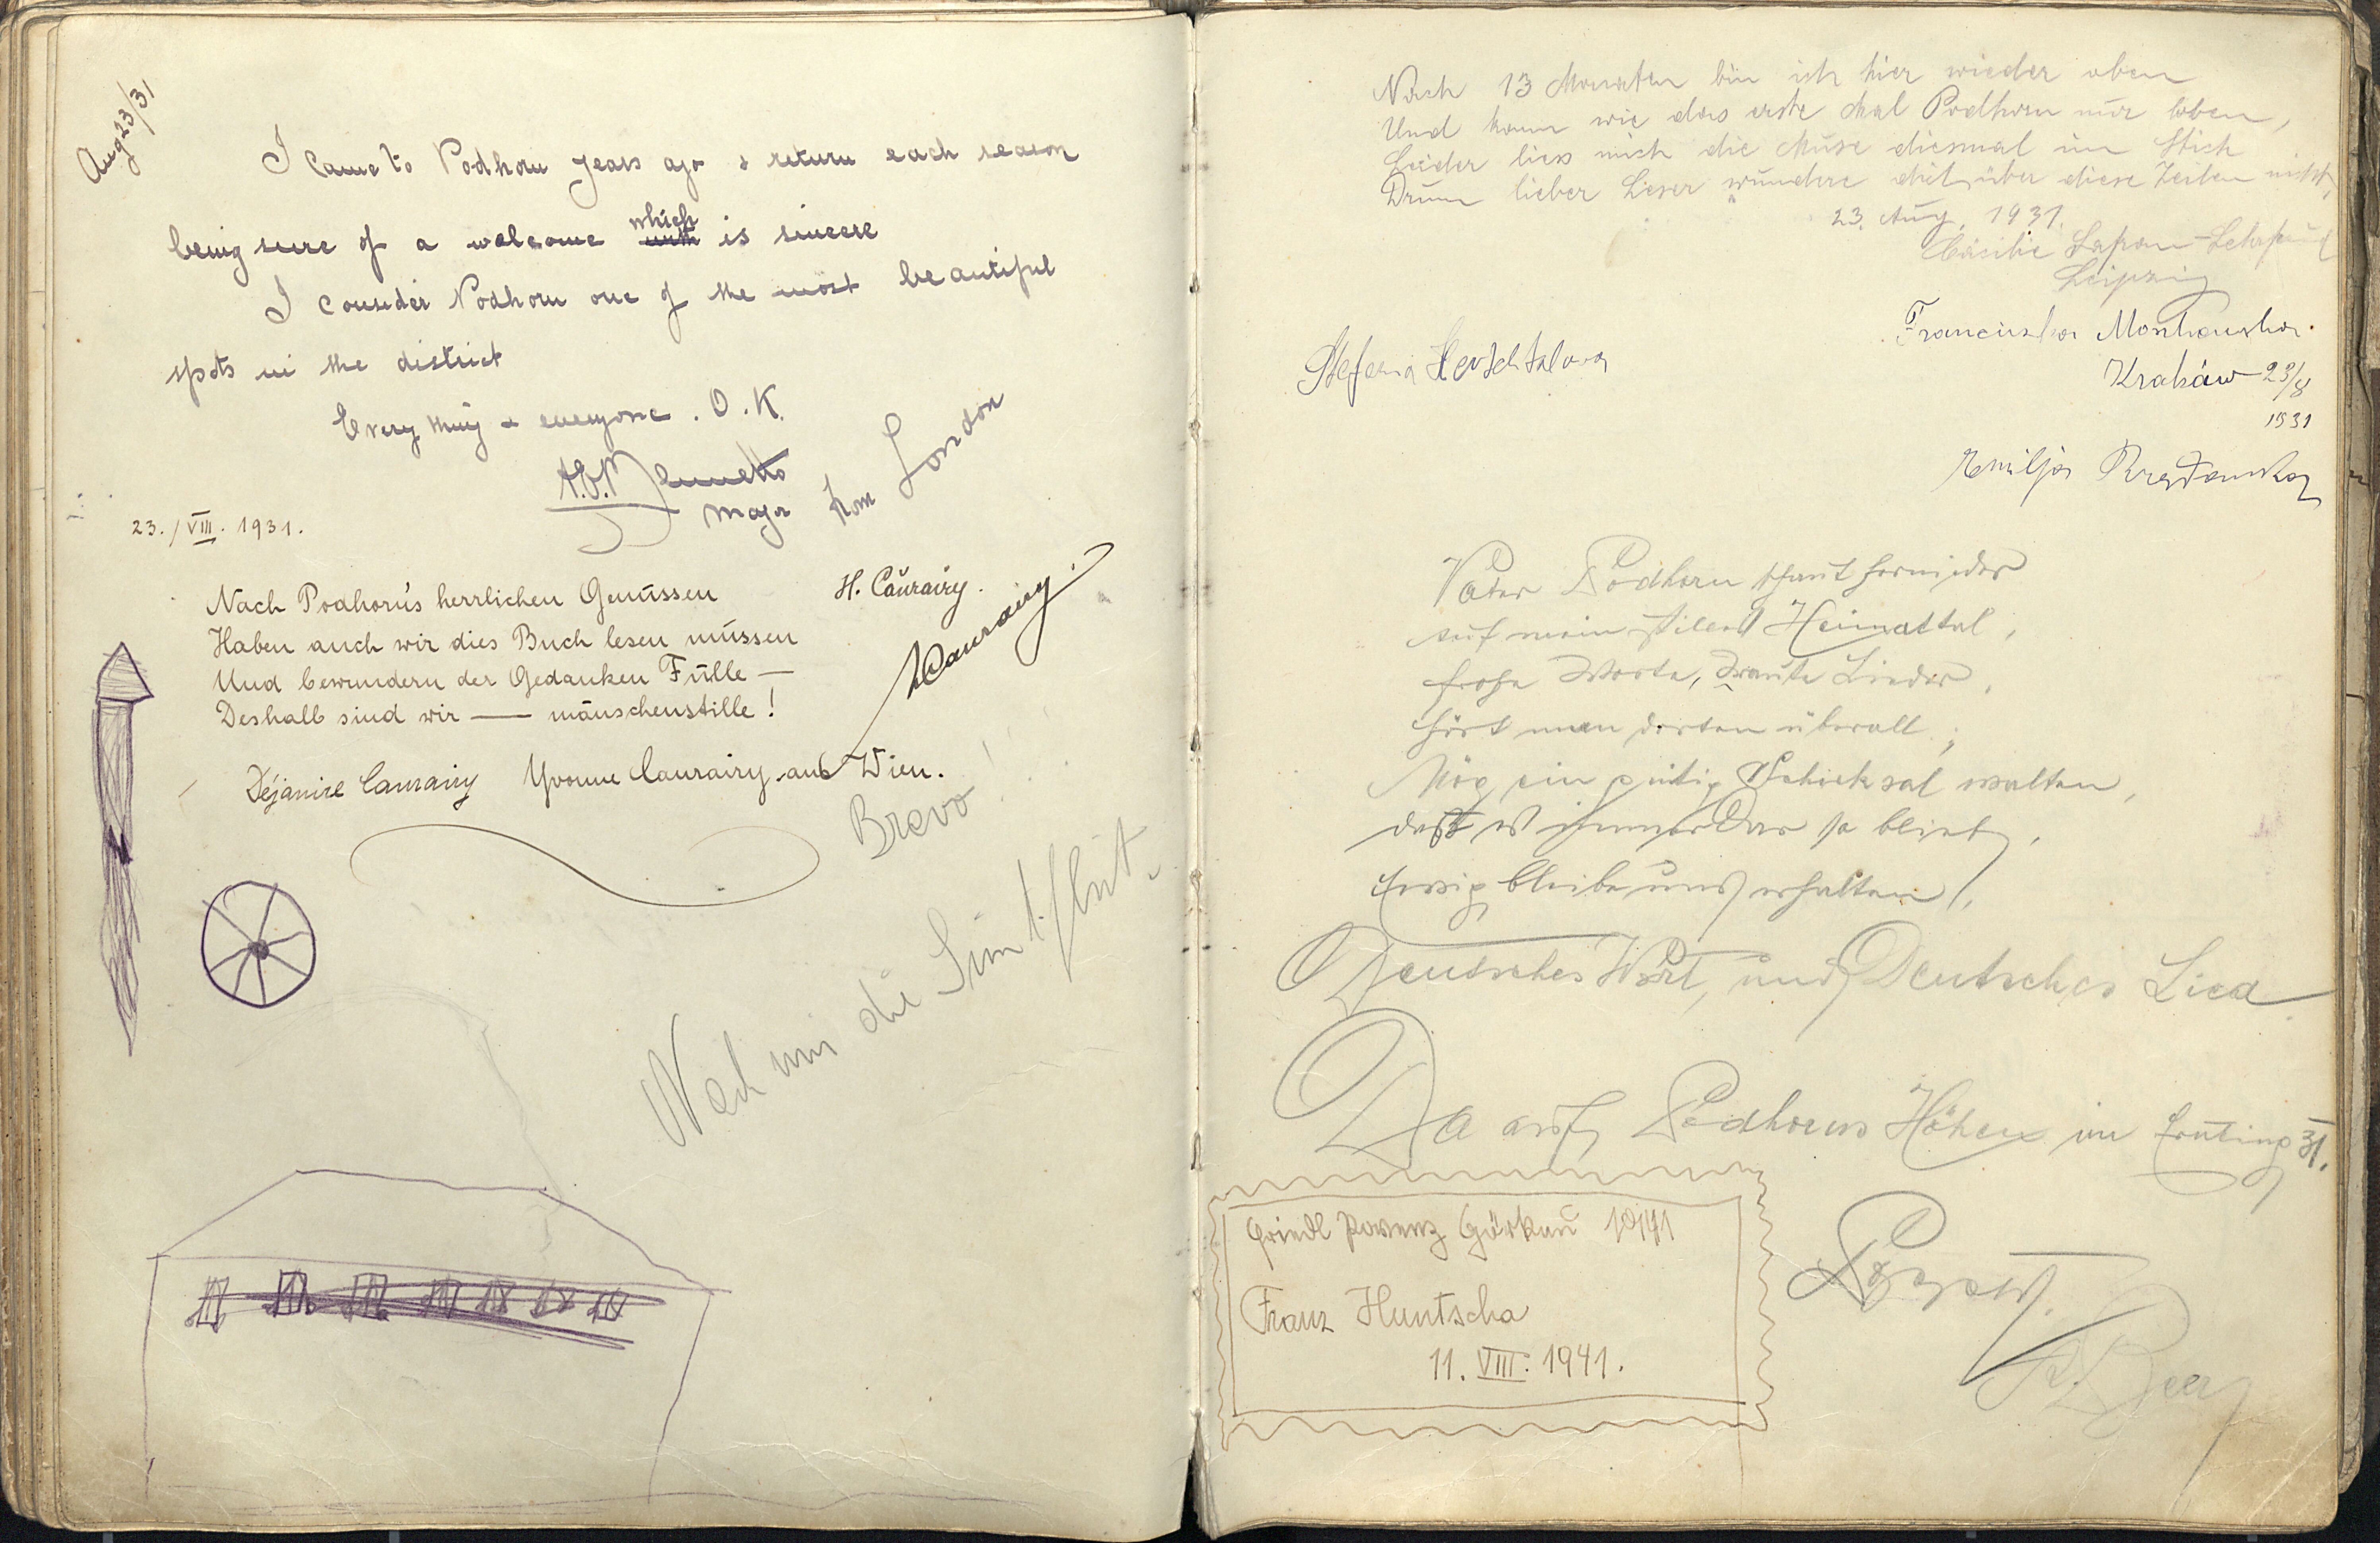 Aug 23/31
I came to Podhorn years ago & return each season
being sure of a welcome which is sincere
I consider Podhorn one of the most beautiful
spots in the district
Every thing & everyone . O.K.
Major from London
23./VIII. 1931.
Nach Podhorn's herrlichen Genüssen
Haben auch wir dies Buch lesen müssen
Und bewundern der Gedanken Fülle —
Deshalb sind wir — mäuschenstille!
H. Caurairy.
HCaurairy.
Déjanire Caurairy Yvonne Caurairy aus Wien.
Bravo!
Nach mir die Sintflut.
Nach 13 Monaten bin ich hier wieder oben
Und kann wie das erste Mal Podhorn nur loben,
Leider liess mich die Muse diesmal im Stich
Drum lieber Leser wundere dich über diese Zeilen nicht,
23. Aug. 1931.
Cäcilie
Leipzig
Franciszka
Kraków 23/8
1931
Stefania
Emilja
Vater Podhorn schaut hernieder
auf mein stilles Heimattal,
frohe Worte, traute Lieder,
hört man dorten überall;
Mög ein gütig Schicksal walten,
daß es immerdar so bleibt,
Ewig bleibe uns erhalten,
Deutsches Wort, und Deutsches Lied
Da auf Podhorns Höhen im Ernting 31.
Friedl Görkau 1941
Franz Huntscha
11. VIII. 1941.